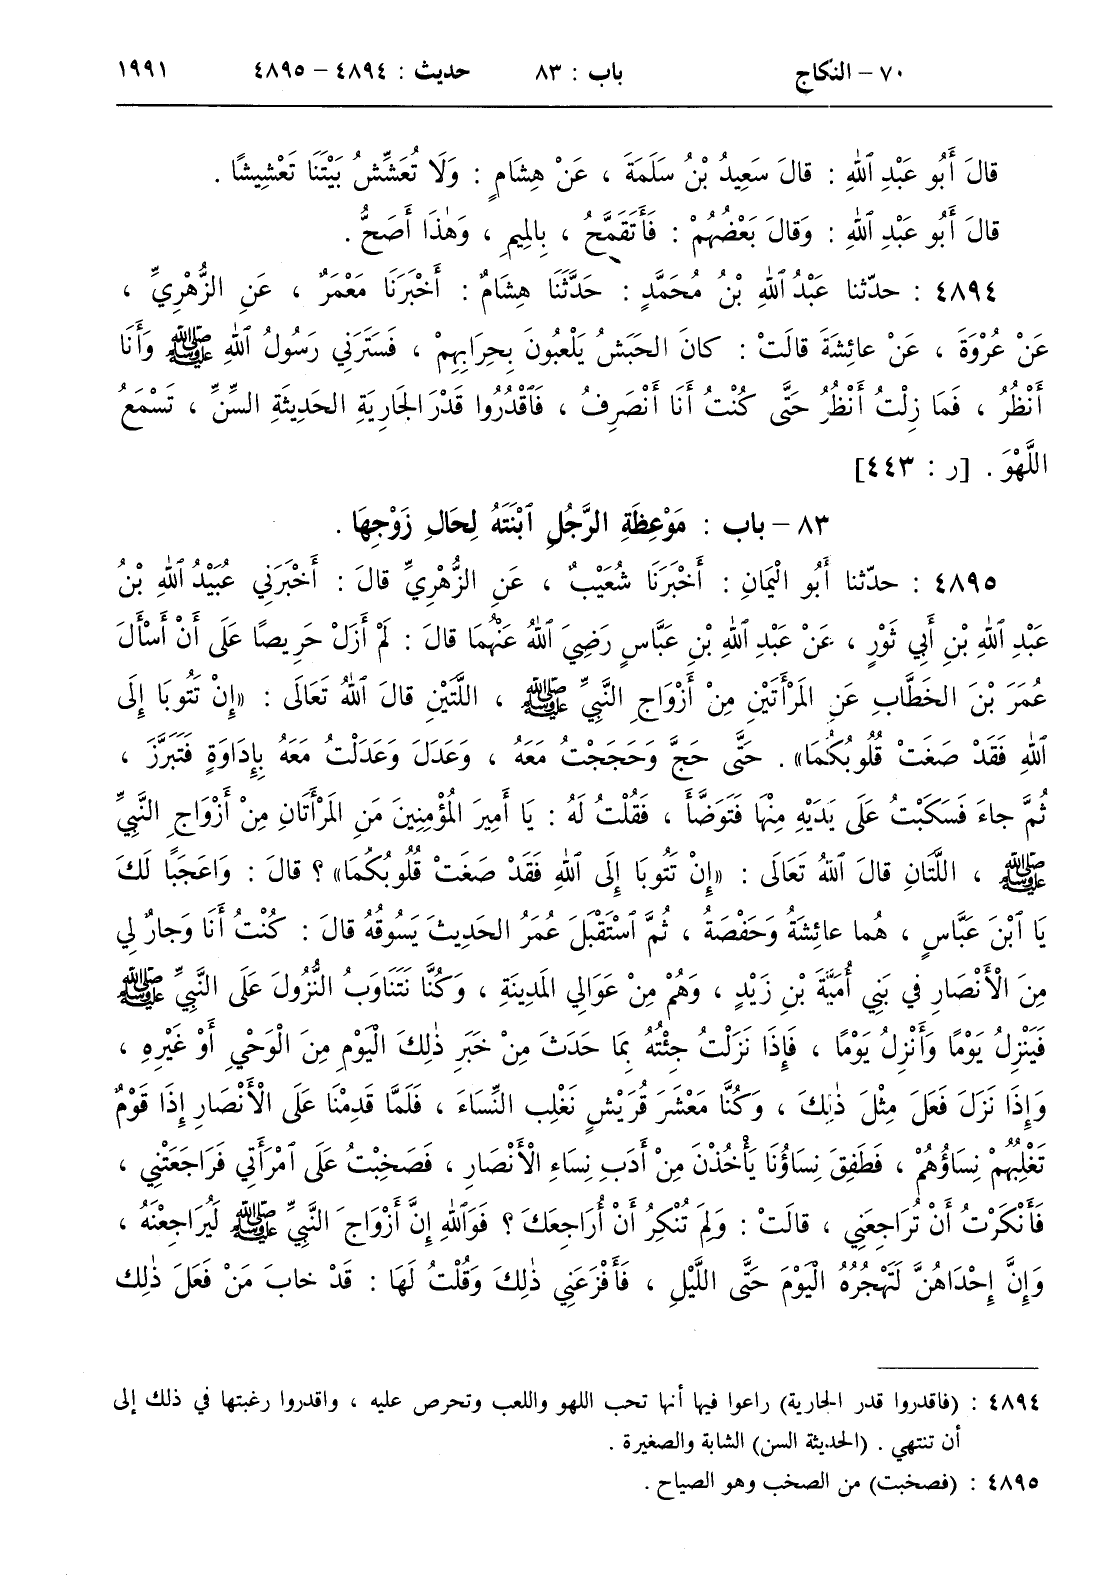 ٧٠ – النكاح باب : ٨٣ حديث : ٤٨٩٤ – ٤٨٩٥ ١٩٩١
قالَ أَبُو عَبْدِ ٱللهِ : قالَ سَعِيدُ بْنُ سَلَمَةَ ، عَنْ هِشَامٍ : وَلَا تُعَشِّشُ بَيْتَنَا تَعْشِيشًا .
قالَ أَبُو عَبْدِ ٱللهِ : وَقالَ بَعْضُهُمْ : فَأَتَقَمَّحُ ، بِالْمِيمِ ، وَهٰذَا أَصَحُّ .
٤٨٩٤ : حدّثنا عَبْدُ ٱللهِ بْنُ مُحَمَّدٍ : حَدَّثَنَا هِشَامٌ : أَخْبَرَنَا مَعْمَرٌ ، عَنِ الزُّهْرِيِّ ،
عَنْ عُرْوَةَ ، عَنْ عائِشَةَ قالَتْ : كانَ الحَبَشُ يَلْعَبُونَ بِحِرَابِهِمْ ، فَسَتَرَنِي رَسُولُ ٱللهِ ﷺ وَأَنَا
أَنْظُرُ ، فَمَا زِلْتُ أَنْظُرُ حَتَّى كُنْتُ أَنَا أَنْصَرِفُ ، فَٱقْدُرُوا قَدْرَ الجَارِيَةِ الحَدِيثَةِ السِّنِّ ، تَسْمَعُ
اللَّهْوَ . [ر : ٤٤٣]
٨٣ – باب : مَوْعِظَةِ الرَّجُلِ ٱبْنَتَهُ لِحَالِ زَوْجِهَا .
٤٨٩٥ : حدّثنا أَبُو الْيَمَانِ : أَخْبَرَنَا شُعَيْبٌ ، عَنِ الزُّهْرِيِّ قالَ : أَخْبَرَنِي عُبَيْدُ ٱللهِ بْنُ
عَبْدِ ٱللهِ بْنِ أَبِي ثَوْرٍ ، عَنْ عَبْدِ ٱللهِ بْنِ عَبَّاسٍ رَضِيَ ٱللهُ عَنْهُمَا قالَ : لَمْ أَزَلْ حَرِيصًا عَلَى أَنْ أَسْأَلَ
عُمَرَ بْنَ الخَطَّابِ عَنِ المَرْأَتَيْنِ مِنْ أَزْوَاجِ النَّبِيِّ ﷺ ، اللَّتَيْنِ قالَ ٱللهُ تَعَالَى : «إِنْ تَتُوبَا إِلَى
ٱللهِ فَقَدْ صَغَتْ قُلُوبُكُمَا» . حَتَّى حَجَّ وَحَجَجْتُ مَعَهُ ، وَعَدَلَ وَعَدَلْتُ مَعَهُ بِإِدَاوَةٍ فَتَبَرَّزَ ،
ثُمَّ جاءَ فَسَكَبْتُ عَلَى يَدَيْهِ مِنْهَا فَتَوَضَّأَ ، فَقُلْتُ لَهُ : يَا أَمِيرَ المُؤْمِنِينَ مَنِ المَرْأَتَانِ مِنْ أَزْوَاجِ النَّبِيِّ
ﷺ ، اللَّتَانِ قالَ ٱللهُ تَعَالَى : «إِنْ تَتُوبَا إِلَى ٱللهِ فَقَدْ صَغَتْ قُلُوبُكُمَا» ؟ قالَ : وَاعَجَبًا لَكَ
يَا ٱبْنَ عَبَّاسٍ ، هُما عائِشَةُ وَحَفْصَةُ ، ثُمَّ ٱسْتَقْبَلَ عُمَرُ الحَدِيثَ يَسُوقُهُ قالَ : كُنْتُ أَنَا وَجارٌ لِي
مِنَ الْأَنْصَارِ فِي بَنِي أُمَيَّةَ بْنِ زَيْدٍ ، وَهُمْ مِنْ عَوَالِي المَدِينَةِ ، وَكُنَّا نَتَنَاوَبُ النُّزُولَ عَلَى النَّبِيِّ ﷺ
فَيَنْزِلُ يَوْمًا وَأَنْزِلُ يَوْمًا ، فَإِذَا نَزَلْتُ جِئْتُهُ بِمَا حَدَثَ مِنْ خَبَرِ ذٰلِكَ الْيَوْمِ مِنَ الْوَحْيِ أَوْ غَيْرِهِ ،
وَإِذَا نَزَلَ فَعَلَ مِثْلَ ذٰلِكَ ، وَكُنَّا مَعْشَرَ قُرَيْشٍ نَغْلِبُ النِّسَاءَ ، فَلَمَّا قَدِمْنَا عَلَى الْأَنْصَارِ إِذَا قَوْمٌ
تَغْلِبُهُمْ نِسَاؤُهُمْ ، فَطَفِقَ نِسَاؤُنَا يَأْخُذْنَ مِنْ أَدَبِ نِسَاءِ الْأَنْصَارِ ، فَصَخِبْتُ عَلَى ٱمْرَأَتِي فَرَاجَعَتْنِي ،
فَأَنْكَرْتُ أَنْ تُرَاجِعَنِي ، قالَتْ : وَلِمَ تُنْكِرُ أَنْ أُرَاجِعَكَ ؟ فَوَٱللهِ إِنَّ أَزْوَاجَ النَّبِيِّ ﷺ لَيُرَاجِعْنَهُ ،
وَإِنَّ إِحْدَاهُنَّ لَتَهْجُرُهُ الْيَوْمَ حَتَّى اللَّيْلِ ، فَأَفْزَعَنِي ذٰلِكَ وَقُلْتُ لَهَا : قَدْ خابَ مَنْ فَعَلَ ذٰلِكَ
٤٨٩٤ : (فاقدروا قدر الجارية) راعوا فيها أنها تحب اللهو واللعب وتحرص عليه ، واقدروا رغبتها في ذلك إلى
أن تنتهي . (الحديثة السن) الشابة والصغيرة .
٤٨٩٥ : (فصخبت) من الصخب وهو الصياح .